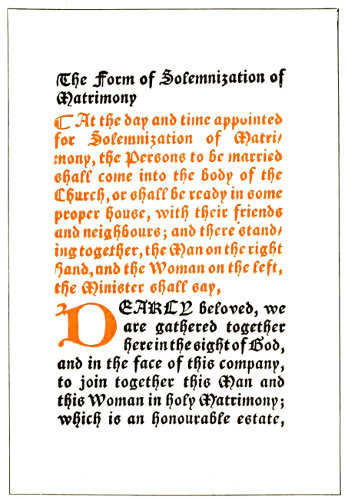 The Form of Solemnization of
Matrimony
☾ At the day and time appointed
for Solemnization of Matri/
mony, the Persons to be married
shall come into the body of the
Church, or shall be ready in some
proper house, with their friends
and neighbours; and there stand/
ing together, the Man on the right
hand, and the Woman on the left,
the Minister shall say,
DEARLY beloved, we
are gathered together
here in the sight of God,
and in the face of this company,
to join together this Man and
this Woman in holy Matrimony;
which is an honourable estate,